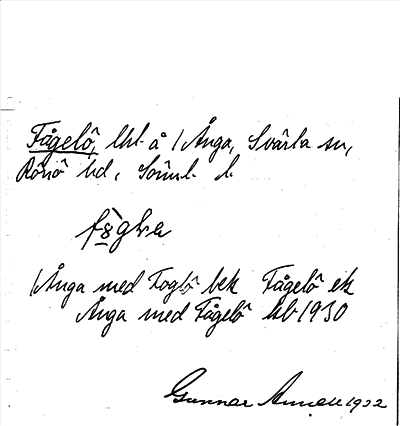 Fågelö, lht å 1 Ånga, Svärta sn,
Rönö hd, Söml. l.
1 Ånga med Foglö bek Fågelö ek
Ånga med Fågelö kb 1930
Gunnar 1932